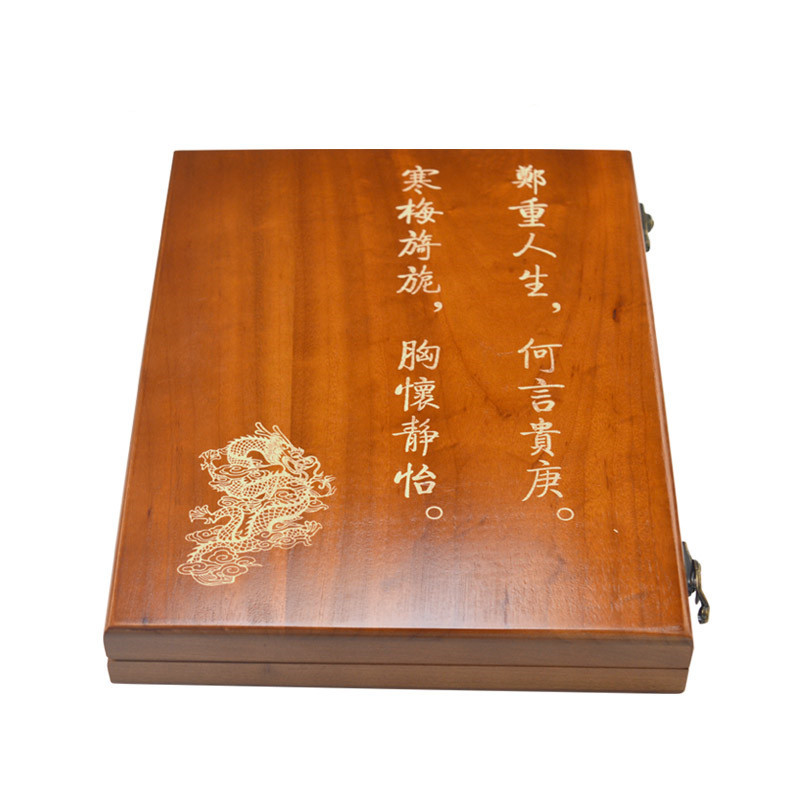 鄭重人生，何言貴庚。
寒梅旖旎，胸懷靜怡。